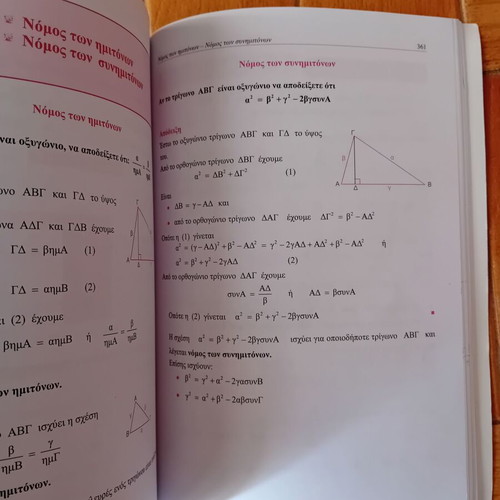 Νόμος των ημιτόνων
Νόμος των συνημιτόνων
Νόμος των ημιτόνων
είναι οξυγώνιο, να αποδείξετε ότι: α/ημΑ = β/ημΒ
ΑΒΓ και ΓΔ το ύψος
ΑΔΓ και ΓΔΒ έχουμε
ΓΔ = βημΑ (1)
ΓΔ = αημΒ (2)
(2) έχουμε
βημΑ = αημΒ ή α/ημΑ = β/ημΒ
ημιτόνων.
ΑΒΓ ισχύει η σχέση
β/ημΒ = γ/ημΓ
ημιτόνων.
ενός τριγώνου
Νόμος των ημιτόνων - Νόμος των συνημιτόνων 361
Νόμος των συνημιτόνων
Αν το τρίγωνο ΑΒΓ είναι οξυγώνιο να αποδείξετε ότι
α² = β² + γ² - 2βγσυνΑ
Απόδειξη
Έστω το οξυγώνιο τρίγωνο ΑΒΓ και ΓΔ το ύψος
του.
Από το ορθογώνιο τρίγωνο ΔΒΓ έχουμε
α² = ΔΒ² + ΔΓ² (1)
Είναι
• ΔΒ = γ - ΑΔ και
• από το ορθογώνιο τρίγωνο ΔΑΓ έχουμε ΔΓ² = β² - ΑΔ²
Οπότε η (1) γίνεται
α² = (γ - ΑΔ)² + β² - ΑΔ² = γ² - 2γΑΔ + ΑΔ² + β² - ΑΔ² ή
α² = β² + γ² - 2γΑΔ (2)
Από το ορθογώνιο τρίγωνο ΔΑΓ έχουμε
συνΑ = ΑΔ/β ή ΑΔ = βσυνΑ
Οπότε η (2) γίνεται α² = β² + γ² - 2βγσυνΑ
Η σχέση α² = β² + γ² - 2βγσυνΑ ισχύει για οποιοδήποτε τρίγωνο ΑΒΓ και
λέγεται νόμος των συνημιτόνων.
Επίσης ισχύουν:
* β² = γ² + α² - 2γασυνΒ
* γ² = α² + β² - 2αβσυνΓ
Γ
β α
Α Δ γ Β